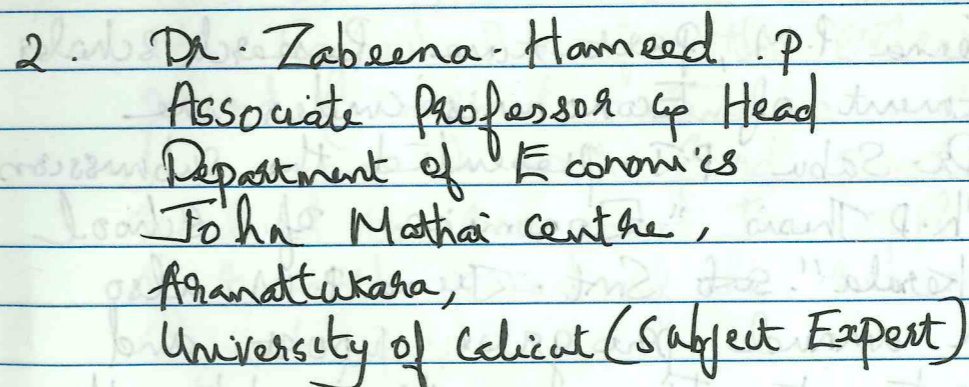 2. Dr. Zabeena. Hameed. P
Associate Professor & Head
Department of Economics
John Mathai Centre,
Aranattukara,
University of Calicut (Subject Expert)